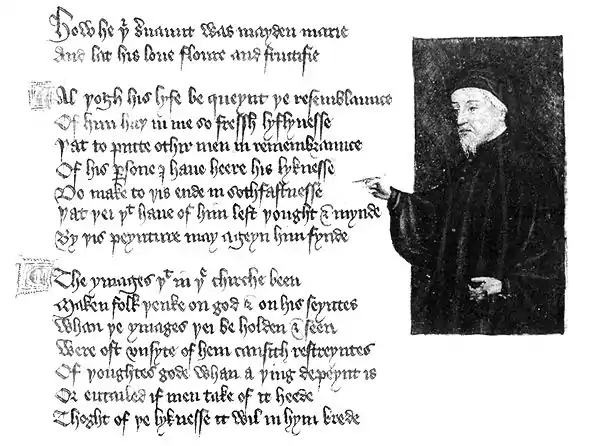 How he yͬ s̉uaunt was mayden marie
And lat his loue floure and fructifie
Al yogh his lyfe be queynt ye resemblaunce
Of him hay in me so fressh lyflynesse
Yat to putte othir men in remembraunce
Of his ꝑsone I haue heere his lyknesse
Do make to yis ende in sothfastnesse
Yat yei yᵗ haue of him left yought & mynde
By yis peynture may ageyn him fynde
The ymages yᵗ in yͤ chirche been
Maken folk yenke on god & on his seyntes
Whan ye ymages yei be holden & seen
Were oft vnsyte of hem causith restreyntes
Of youghtes gode whan a ying depeynt is
Or entailed if men take of it heede
Thoght of ye lyknesse it wil in hym brede